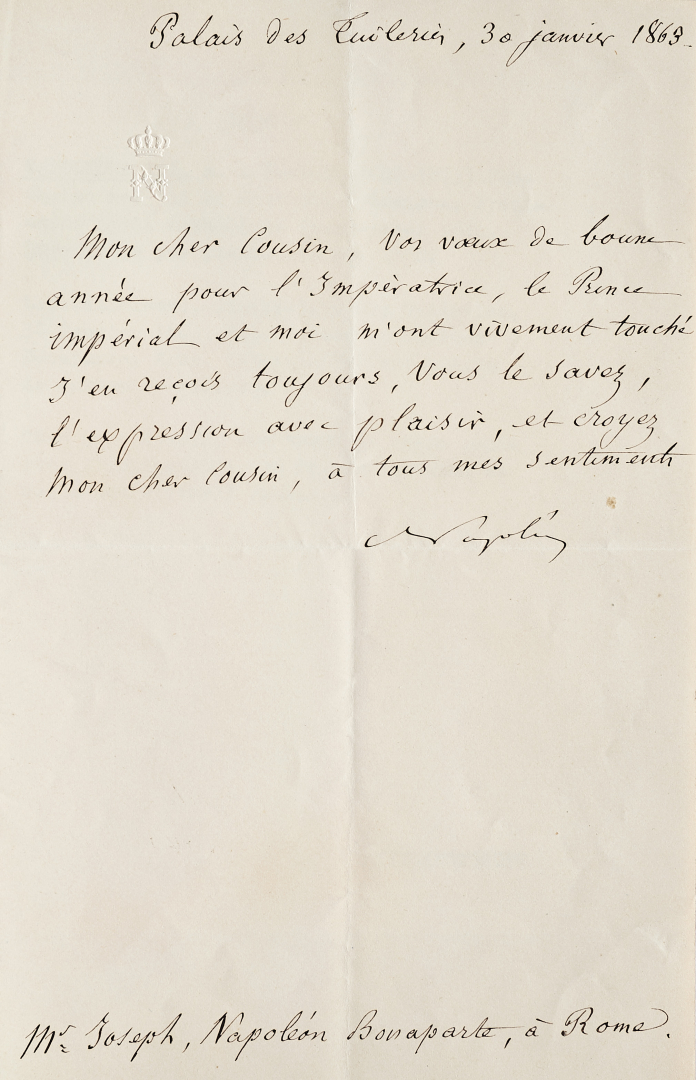 Palais des Tuileries, 30 janvier 1863.
N
Mon cher Cousin, Vos vœux de bonne
année pour l'Impératrice, le Prince
impérial et moi m'ont vivement touché
J'en reçois toujours, Vous le savez,
l'expression avec plaisir, et croyez
Mon cher Cousin, à tous mes sentiments
Napoléon
Mr. Joseph, Napoléon Bonaparte, à Rome.